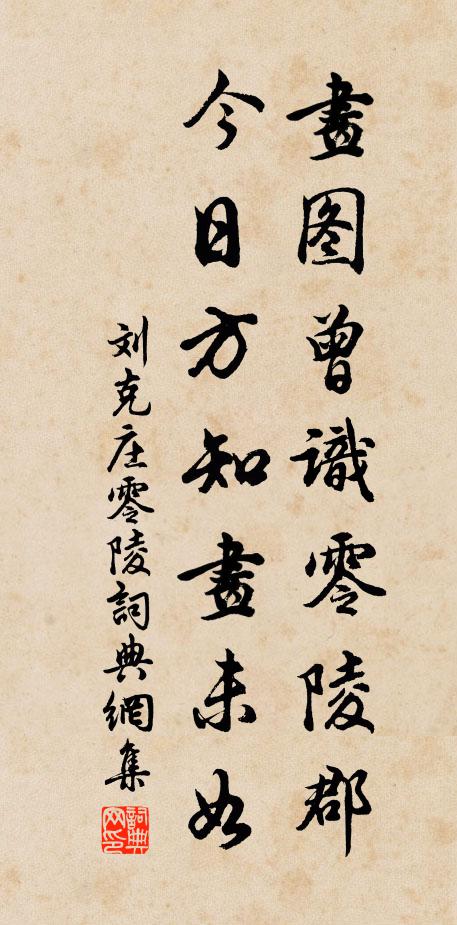 畫图曾識零陵郡
今日方知畫未如
刘克庄零陵詞典網集
詞典
网印